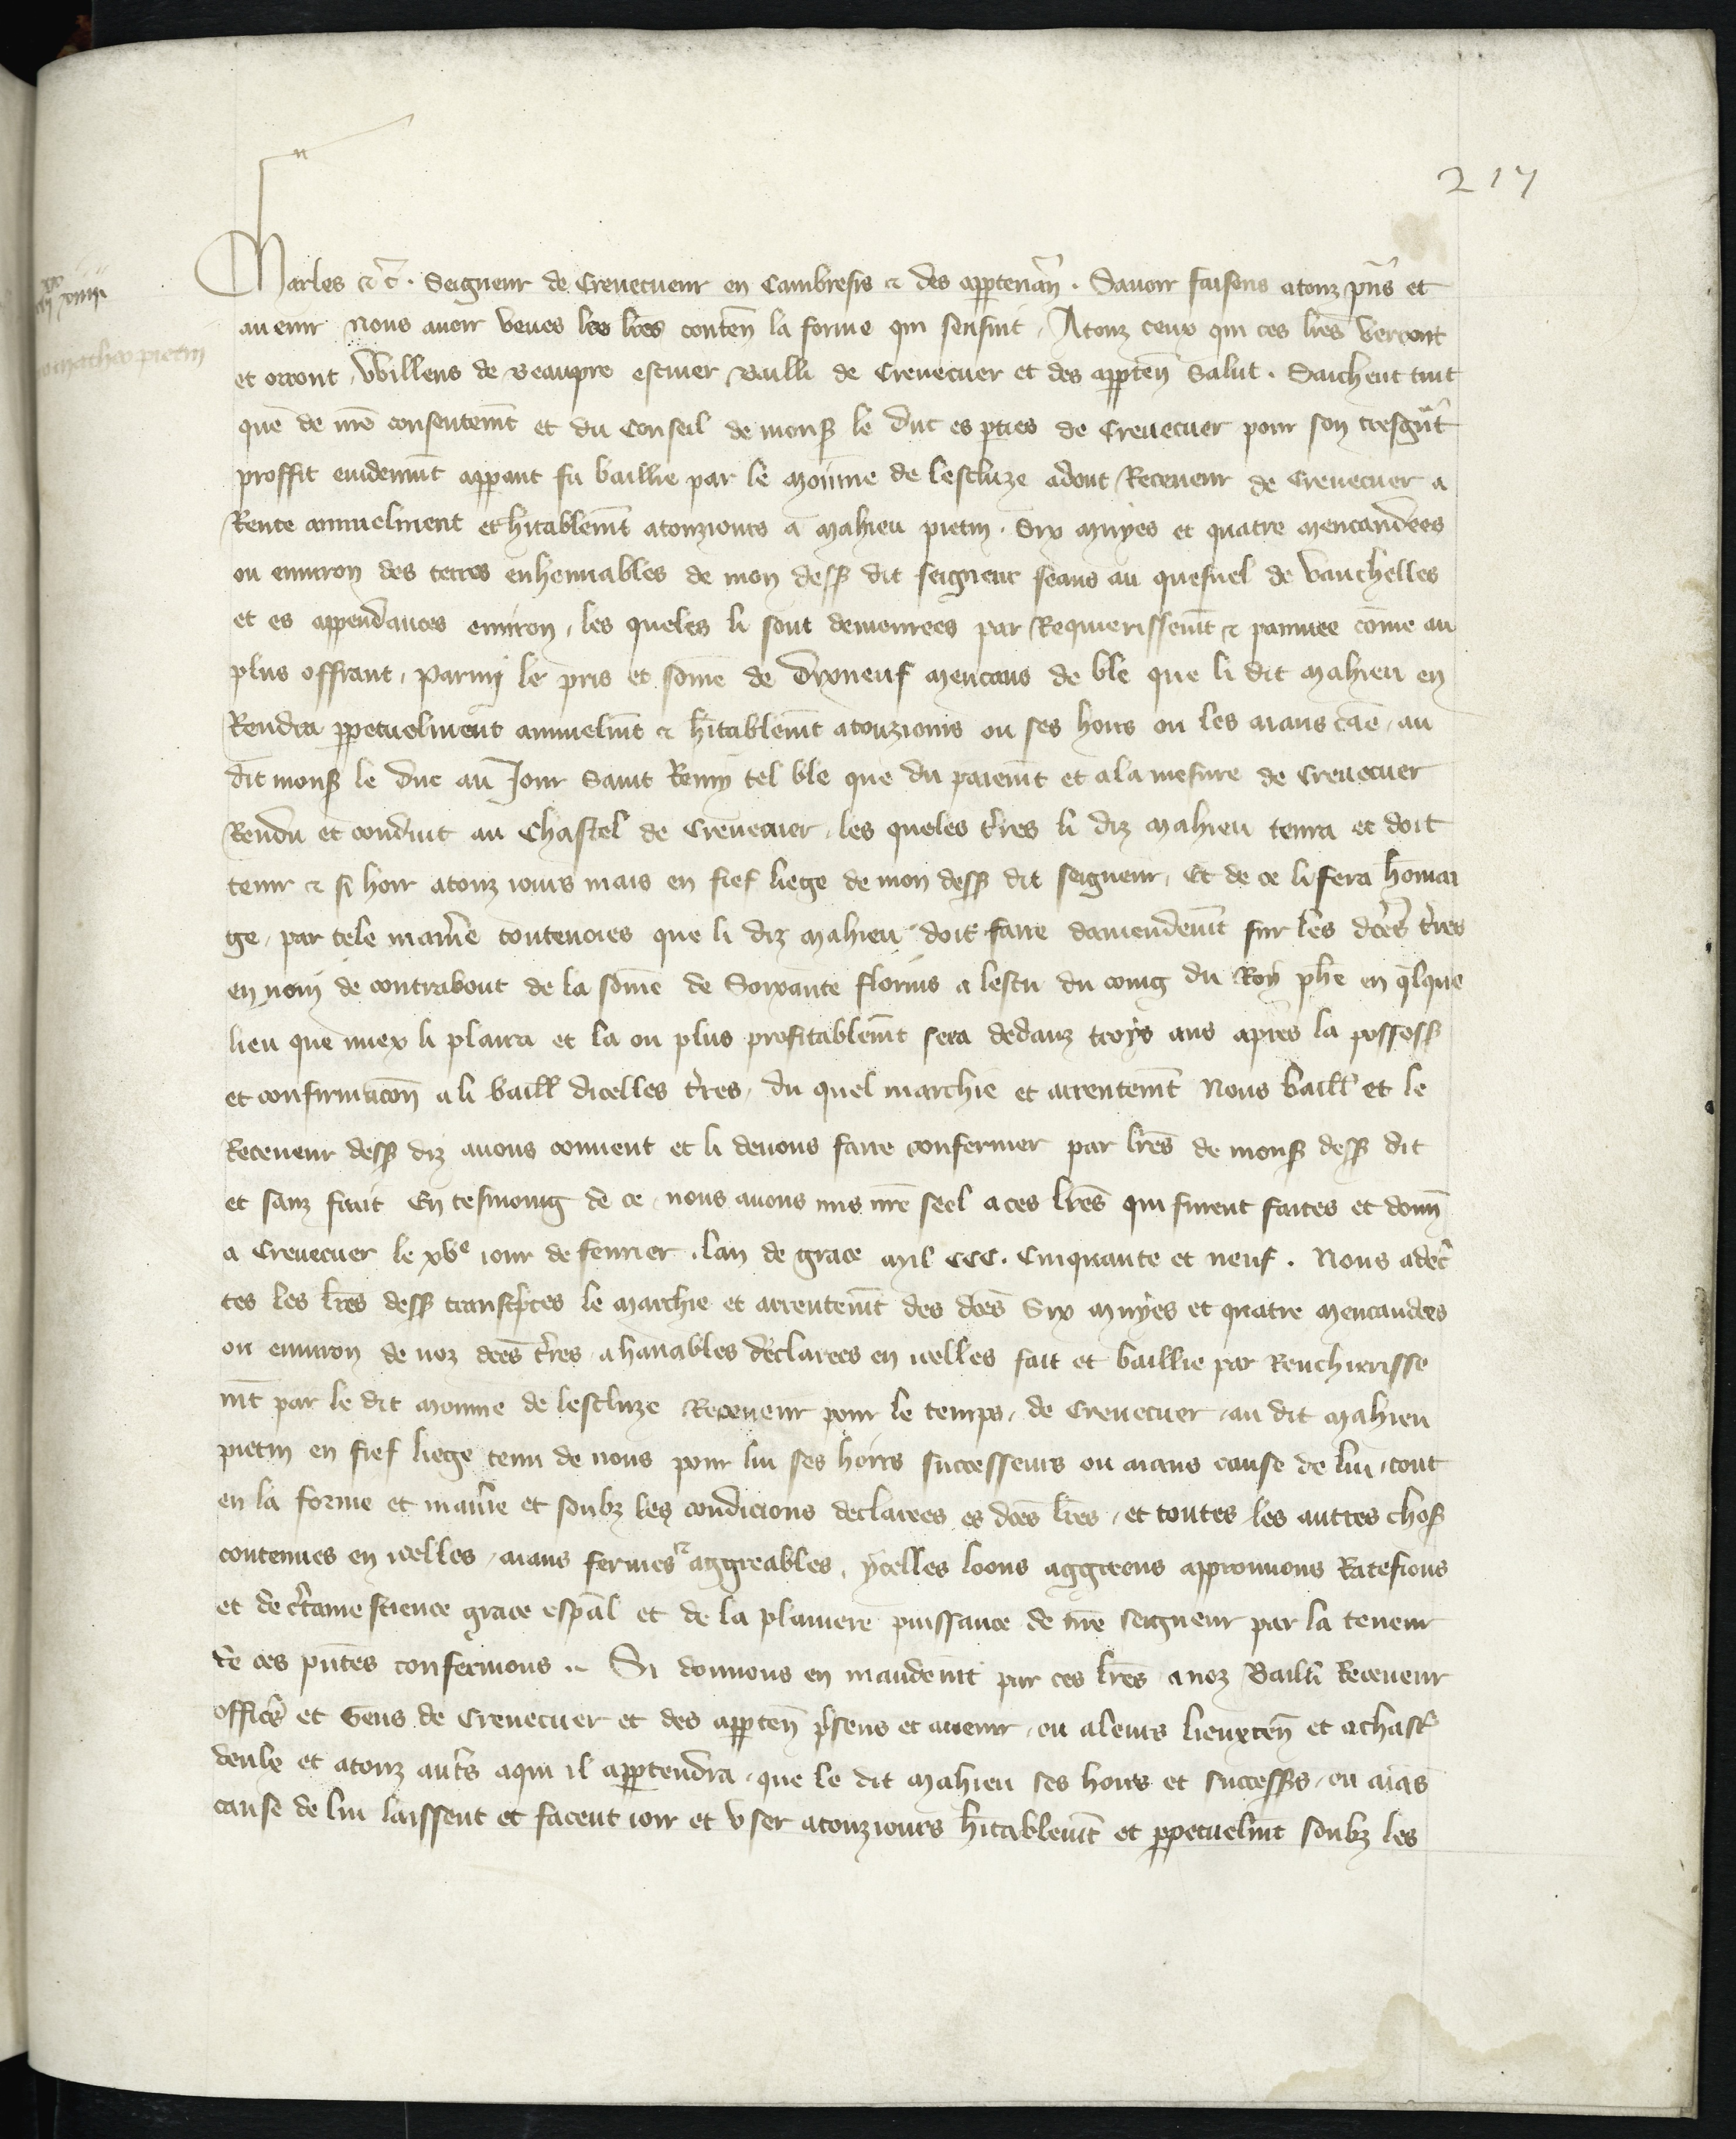 217
Charles &c̄. Seigneur de Crevecueur en Cambresis & des appartenan̄. Savoir faisens a touz pn̄s et
avenir nous avoir veues les lr̄es conten̄ la forme qui sensuit. A touz ceux qui ces lr̄es verront
et orront, Willems de Beaupre escuier Bailli de Crevecuer et des apparten̄ Salut. Saichent tuit
que de nr̄e consentem̄t et du Conseil de mons̄ le duc es p̄ties de Crevecuer pour son tresgn̄t
proffit evidenmūt apparant fu baillie par le Moinne de Lescluze adont Receveur de Crevecuer a
Rente annuelment et hitablem̄t a touziours a Mahieu pietin. Six muyes et quatre mencaudees
ou environ des terres enhennables de mon dess̄ dit seigneur seans au quesnel de Vauchelles
et es appendances environ, les queles li sont demourees par Requierissem̄t & paumee com̄e au
plus offrant, parmi le pris et som̄e de dixneuf mencaus de ble que li dit Mahieu en
Rendra p̄petuelment annuelm̄t & h̄itablem̄t a touziours ou ses hoirs ou les aians cāe, au
dit mons̄ le duc au Jour Saint Remy tel ble que du paiem̄t et a la mesure de Crevecuer
Rendu et conduit au Chastel de Crevecuer, les queles t̄res li diz Mahieu tenra et doit
tenir & si hoir a touz iours mais en fief liege de mon dess̄ dit seigneur, Et de ce li fera hom̄ai
ge, par tele manīe contenoies que li diz Mahieu doit faire damendem̄t sur les dc̄es t̄res
en nom de contrabout de la som̄e de Soixante florins a lescu du coing du Roy ph̄e en q̄lque
lieu que miex li plaira et la ou plus profitablem̄t sera dedanz troys ans apres la possess̄
et confirmacōn a li baill̄ dicelles t̄res, du quel marchie et arrentem̄t Nous baill̄ et le
Receveur dess̄ diz avons convent et li devons faire confermer par lr̄es de mons̄ dess̄ dit
et sanz frait En tesmoing de ce, nous avons mis nr̄e seel a ces lr̄es qui furent faites et donn̄
a Crevecuer le xvᵉ iour de fevrier, lan de grace mil CCC. Cinquante et neuf. Nous a dec̄
tes les lr̄es dess̄ transcp̄tes le marchie et arrentem̄t des dc̄es Six muyes et quatre mencaudees
ou environ de noz dc̄es t̄res, ahanables declarees en icelles fait et baillie par Renchierisse
m̄t par le dit Moinne de lescluze Receveur pour le temps, de Crevecuer, au dit Mahieu
pietin en fief liege tenu de nous pour lui ses hoirs successeurs ou aians cause de lui, tout
en la forme et manīe et soubz les condicions declarees es dc̄es lr̄es, et toutes les autres chos̄
contenues en icelles, aians fermes & aggreables, ycelles loons aggreons approuvons Ratefions
et de c̄taine science grace esp̄al et de la plainiere puissance de nr̄e seigneur par la teneur
de ces pn̄tes confermons. Si donnons en mandem̄t par ces lr̄es a noz Bailli Receveur
offic̄s et Gens de Crevecuer et des apparten̄ p̄sens et avenir, ou a leurs lieuxten̄ et a chasc̄
deulx et a touz aut̄s a qui il appartendra, que le dit Mahieu ses hoirs et success̄s, ou aiās
cause de lui laissent et facent ioir et user a touziours h̄itablem̄t et p̄petuelm̄t soubz les